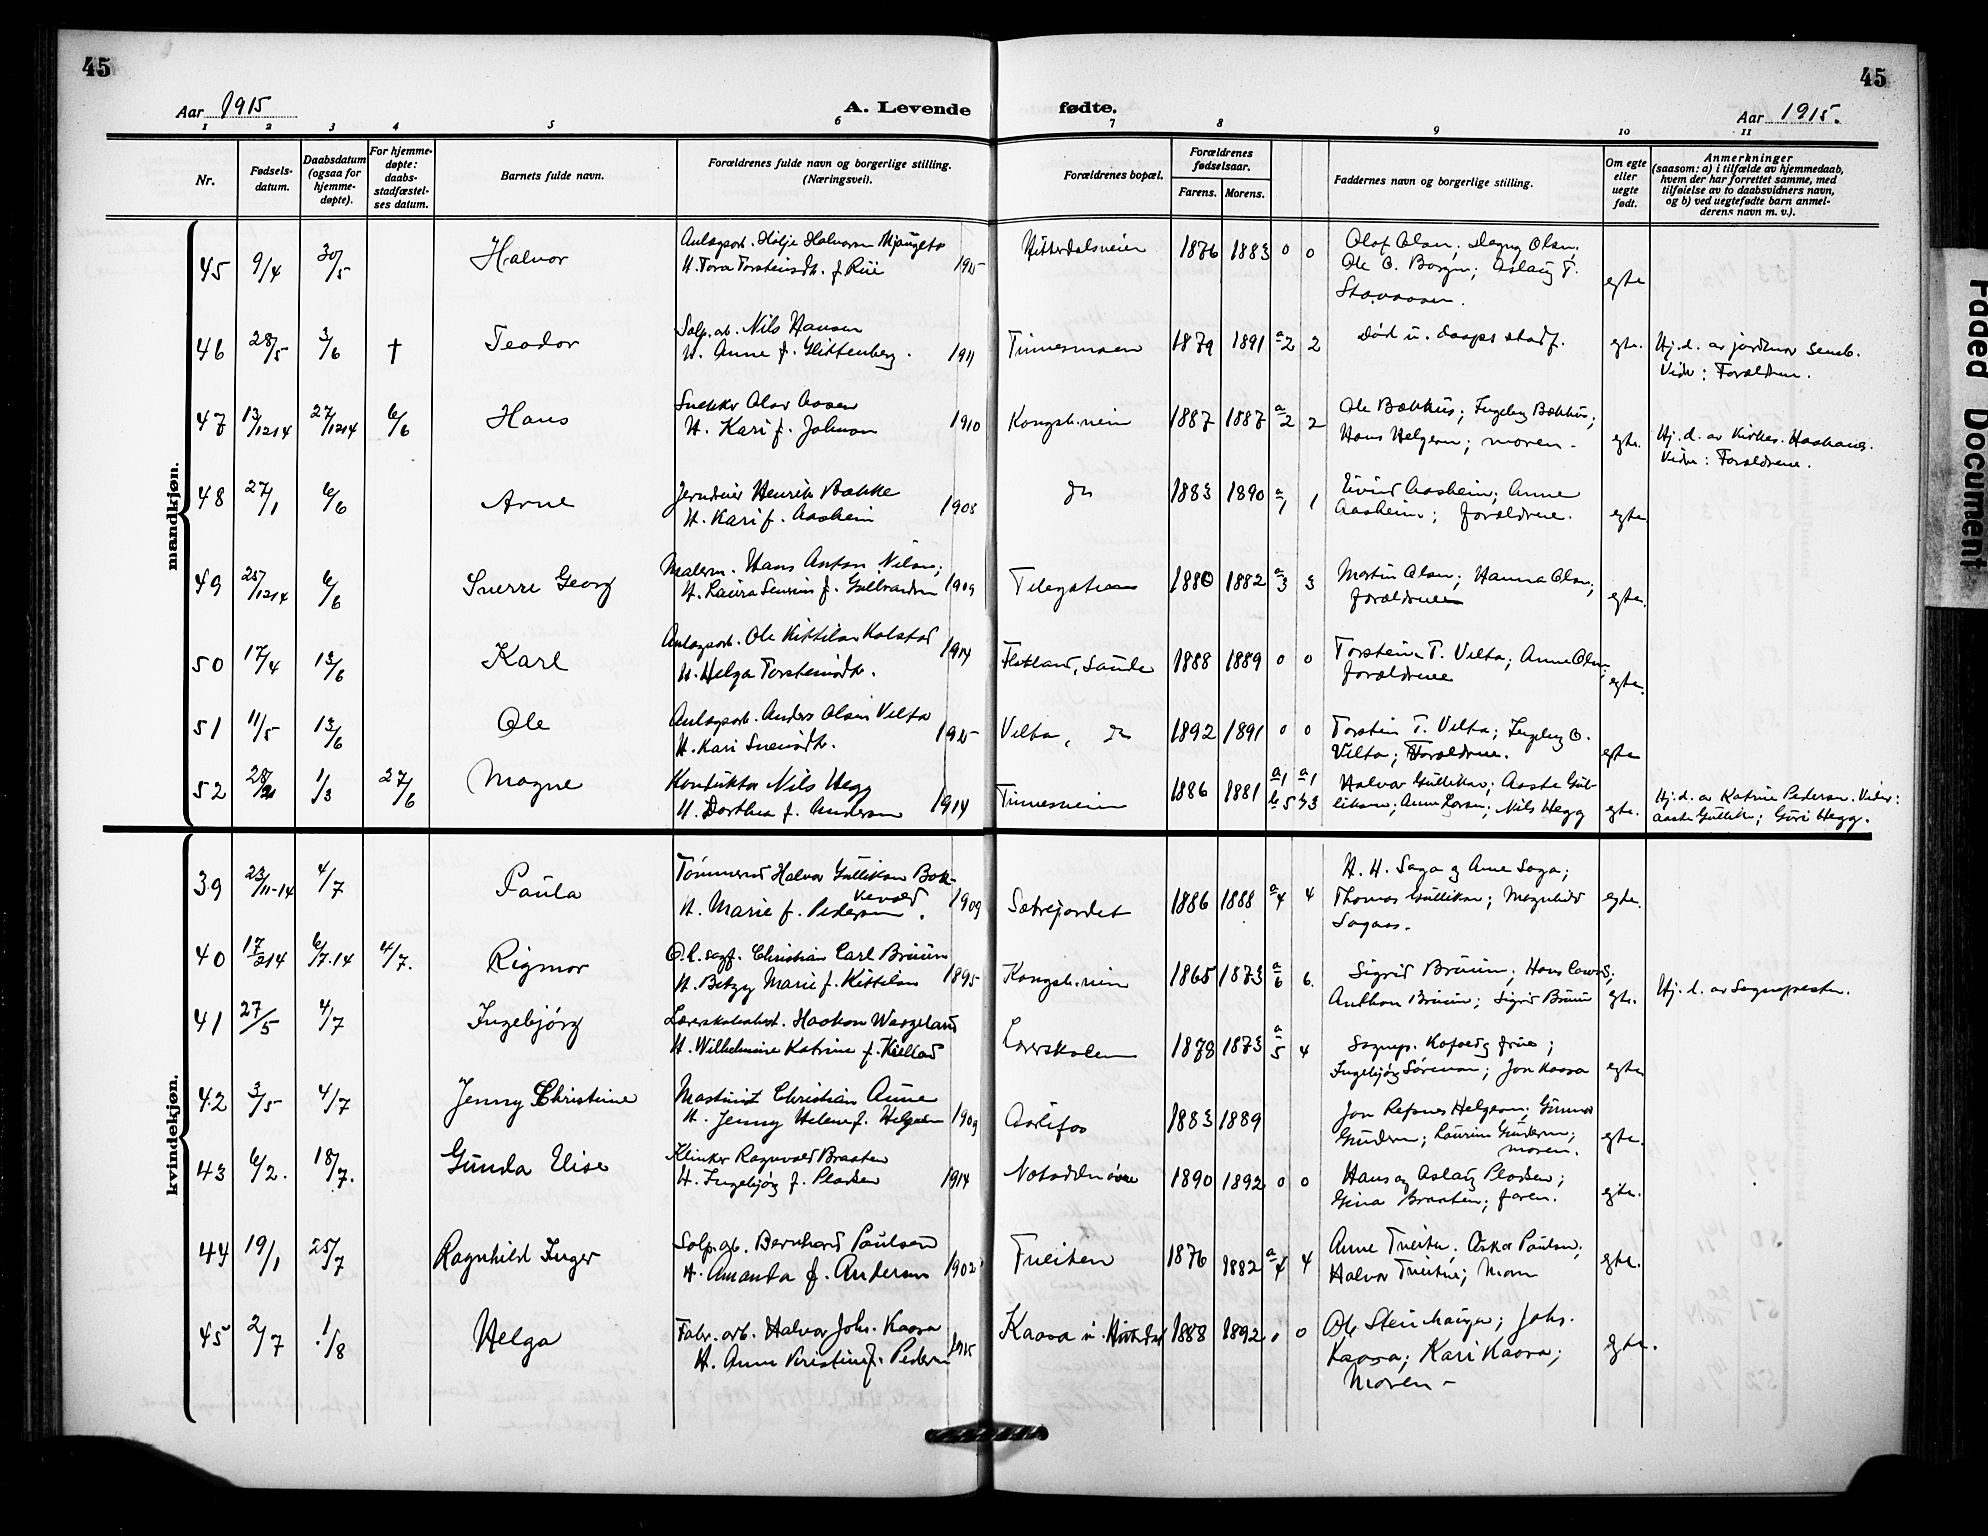 45
45
Aar 1915
A. Levende
fødte.
Aar 1915.
1 2 3 4 5 6 7 8 9 10 11
Nr.
Fødsels-
datum.
Daabsdatum
(ogsaa for
hjemme-
døpte).
For hjemme-
døpte:
daabs-
stadfæstel-
ses datum.
Barnets fulde navn.
Forældrenes fulde navn og borgerlige stilling.
(Næringsvei).
Forældrenes bopæl.
Forældrenes
fødselsaar.
Farens. Morens.
Faddernes navn og borgerlige stilling.
Om egte
eller
uegte
født.
Anmerkninger
(saasom: a) i tilfælde av hjemmedaab,
hvem der har forrettet samme, med
tilføielse av to daabsvidners navn,
og b) ved uegtefødte barn anmel-
derens navn m. v.).
mandkjøn.
45 9/4 30/5 Halvor
H. Tora Torsteinsdt. f. Rui
1915
Hitterdalsveien 1876 1883 0 0
Olaf Olsen; Dagny Olsen;
Ole O. Borgen; Aslaug T.
egte
46 28/5 3/6 † Teodor
Solp. arb. Nils Hansen
H. Anne f. Glittenberg. 1911
Tinnesmoen 1879 1891 a2 2
Død u. daaps stadf.
egte.
Hj. d. av jordmor Semb.
Vidn: Forældrene.
47 13/12 14 27/12 14 6/6 Hans
Snekker Olav Aasen
H. Kari f. Johnson 1910
Kongsb.veien 1887 1887 a2 2
Ole Bækhus; Ingeborg Bækhus;
Hans Helgesen; moren.
egte.
Hj. d. av Kirkes. Haahaug.
Vidn: Forældrene.
48 27/1 6/6 Arne
Henrik Bakke
H. Kari f. Aasheim 1908
do 1883 1890 a1 1
Eivind Aasheim; Anne
Aasheim; forældrene.
egte
49 25/12 14 6/6 Sverre Georg
Malerm. Hans Anton Nilsen;
H. Laura Severine f. Gulbrandsen 1909
1880 1882 a3 3
Martin Olsen; Hanna Olsen;
forældrene
egte.
50 17/4 13/6 Karl
Anlægsarb. Ole Kittilsen Kolstad
H. Helga Torsteinsdt. 1914
Flatland, Saude 1888 1889 0 0
Torstein T. Velta; Anne Olsen;
forældrene
egte.
51 11/5 13/6 Ole
Anlægsarb. Anders Olsen Velta
H. Kari Sveinsdt. 1915
Velta, do 1892 1891 0 0
Torstein T. Velta; Ingeborg O.
Velta; Forældrene.
egte
52 1/3 27/6 Magne
Konduktør Nils Hegg
H. Dorthea f. Andersen 1914
Tinnesveien 1886 1881 a1 a1
b5 b3
Halvor Gulliksen; Aaste Gul-
liksen; Anne Larsen; Nils Hegg
egte.
Hj. d. av Katrine Pedersen. Vidner:
Aaste Gulliks.; Guri Hegg.
kvindekjøn.
39 23/11-14 4/7 Paula
Tømmerm. Halvor Gulliksen Bak-
kevold
H. Marie f. Pedersen. 1909
Sætrejordet 1886 1888 a4 4
H. H. Saga og Anne Saga;
Thomas Gulliksen; Magnhild
Sagaas.
egte.
40 17/2 14 6/7.14 4/7. Rigmor
O.r. sagf. Christian Carl Bruun
H. Betzy Marie f. Kittilsen 1895
Kongsb.veien 1865 1873 a6 6.
Sigrid Bruun;
Anthon Bruun; Sigrid Bruun
egte.
Hj. d. av Sognepresten.
41 27/5 4/7 Ingebjørg
Haakon Wergeland
H. Wilhelmine Katrine f. Kielland
Lærerskolen 1878 1873 a5 4
Sognepr. Kofoed og frue;
Ingebjørg Sørensen; Jon Kaasa
egte
42 3/5 4/7 Jenny Christine
Maskinist Christian Aune
H. Jenny Helene f. Helgesen 1909
Aarlifos 1883 1889
Jon Refsnes Helgesen; Gunnar
Gundersen; Laurine Gundersen;
moren.
egte.
43 6/2. 18/7. Gunda Elise
Klinker Ragnvald Braaten
H. Ingebjørg f. 1914
1890 1892 0 0
Hans og Aslaug
Gina Braaten; faren.
egte.
44 19/1 25/7 Ragnhild Inger
Solp. arb. Bernhard Paulsen
H. Amanda f. Andersen 1902
Tveiten 1876 1882 a4 4
Anne Tveiten; Oskar Paulsen;
Halvor Tveiten; Moren
egte.
45 2/7 1/8 Helga
Fabr. arb. Halvor Johs. Kaasa
H. Anne Kristine f. Pedersen 1915
Kaasa i Hitterdal 1888 1892 0 0
Ole Steinhaugen; Johs.
Kaasa; Kari Kaasa;
Moren -
egte.
Faded Document